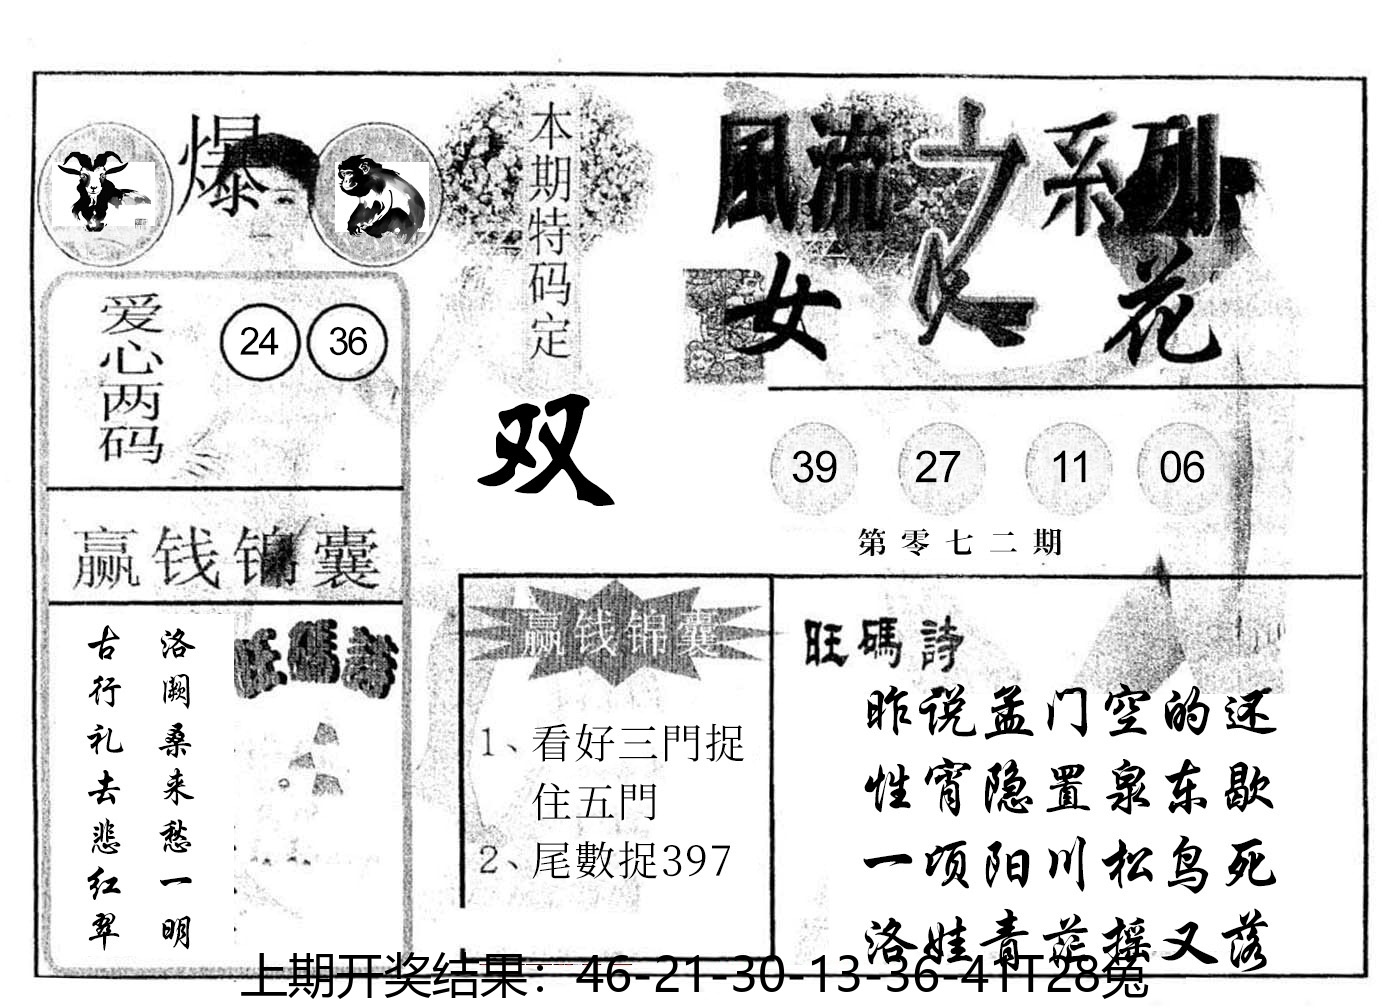 爆
本期特码定
双
風流之系列
女人花
爱心两码
24 36
39 27 11 06
第零七二期
赢钱锦囊
旺碼詩
洛阙桑来愁一明
古行礼去悲红翠
赢钱锦囊
1、看好三門捉
住五門
2、尾數捉397
旺碼詩
昨说孟门空的还
性宵隐置泉东歇
一顷阳川松鸟死
洛娃青茫摇又落
上期开奖结果：46-21-30-13-36-41T28兔